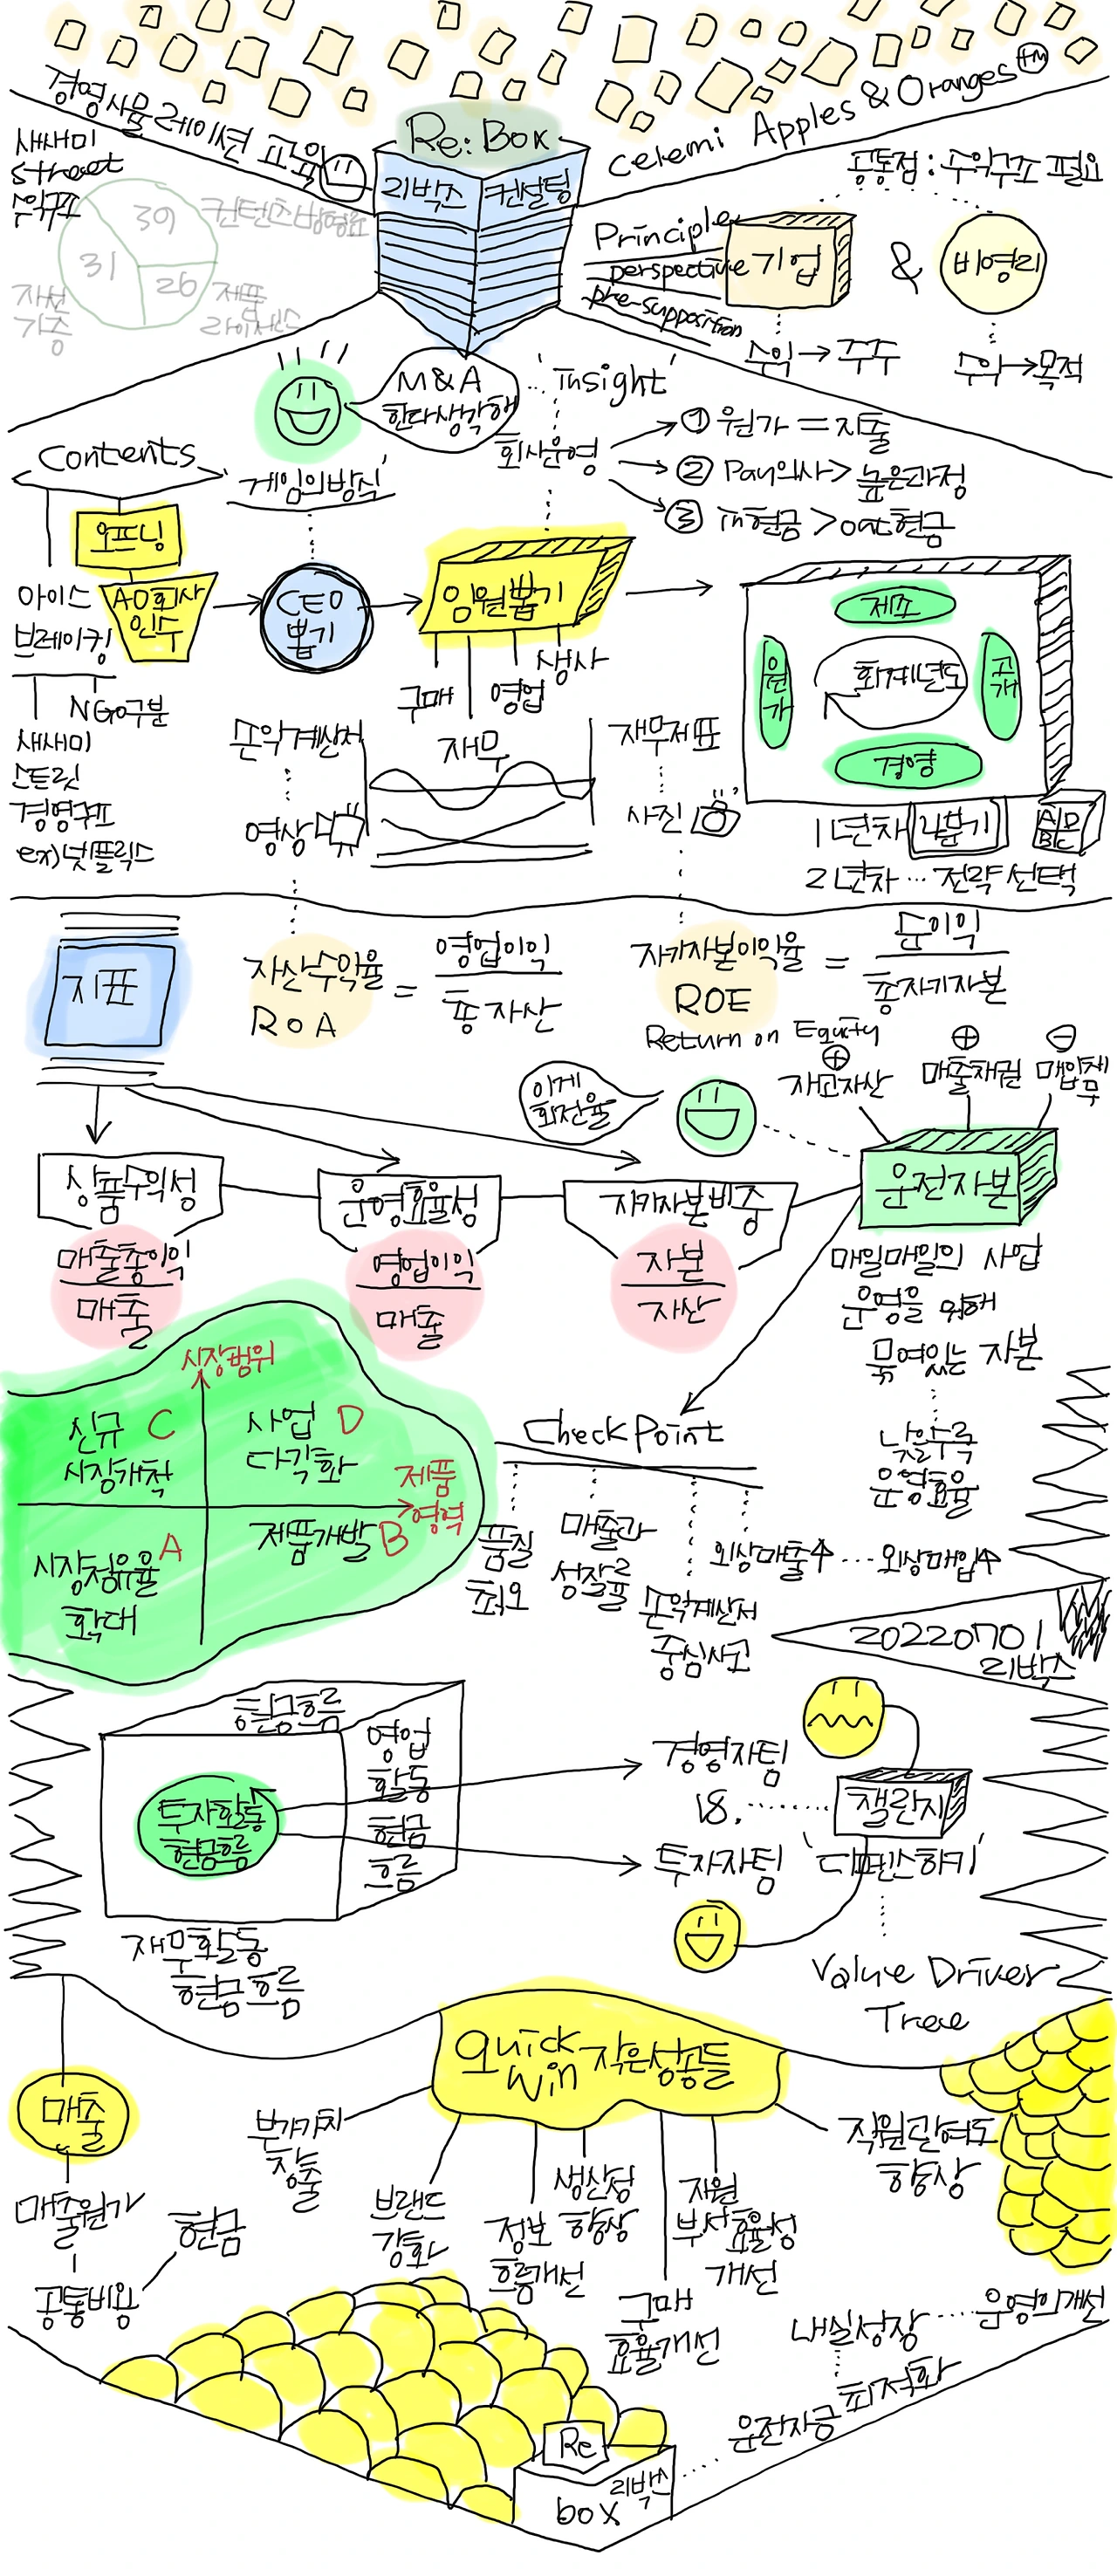 경영시뮬레이션 교육
Re: Box
리박스 컨설팅
celemi Apples & Oranges TM
새새미
street
수익구조
39
31
26
컨텐츠방영료
자선
기증
제품
라이센스
공통점 : 수익구조 필요
Principle
perspective
pre-supposition
기업
&
비영리
수익→주주
수익→목적
M&A
한다생각해
insight
회사운영
① 원가 = 지출
② Pay의사 > 높은과정
③ in현금 > out현금
Contents
'게임의방식'
오프닝
아이스
브레이킹
AO회사
인수
CEO
뽑기
임원뽑기
구매
재무
영업
생산
NGO구분
새새미
스트릿
경영구조
ex) 넷플릭스
손익계산서
영상
재무제표
사진
제조
원가
회계년도
공개
경영
1년차 4분기
A D
B C
2년차 … 전략선택
지표
자산수익율
ROA
=
영업이익
총 자산
자기자본이익율
ROE
=
순이익
총자기자본
Return on Equity
이게
회전율
⊕
재고자산
⊕
매출채권
⊖
매입채무
운전자본
상품수익성
매출총이익
매출
운영효율성
영업이익
매출
자기자본비중
자본
자산
매일매일의 사업
운영을 위해
묶여있는 자본
낮을수록
운영효율
시장범위
신규 C
시장개척
사업 D
다각화
제품
영역
시장점유율 A
확대
제품개발 B
Check Point
품질
최오
매출과
성장률
손익계산서
중심사고
외상매출↑ … 외상매입↑
20220701
리박스
현금흐름
영업
활동
현금
흐름
투자활동
현금흐름
재무활동
현금흐름
경영자팀
vs.
투자자팀
챌린지
'디펜스하기'
Value Driver
Tree
Quick
Win 작은성공들
매출
매출원가
공통비용
현금
부가가치
창출
브랜드
강화
정보
흐름개선
생산성
향상
구매
효율개선
지원
부서효율성
개선
직원관여도
향상
내실성장 … 운영의개선
최적화
운전자금
Re
box
리박스